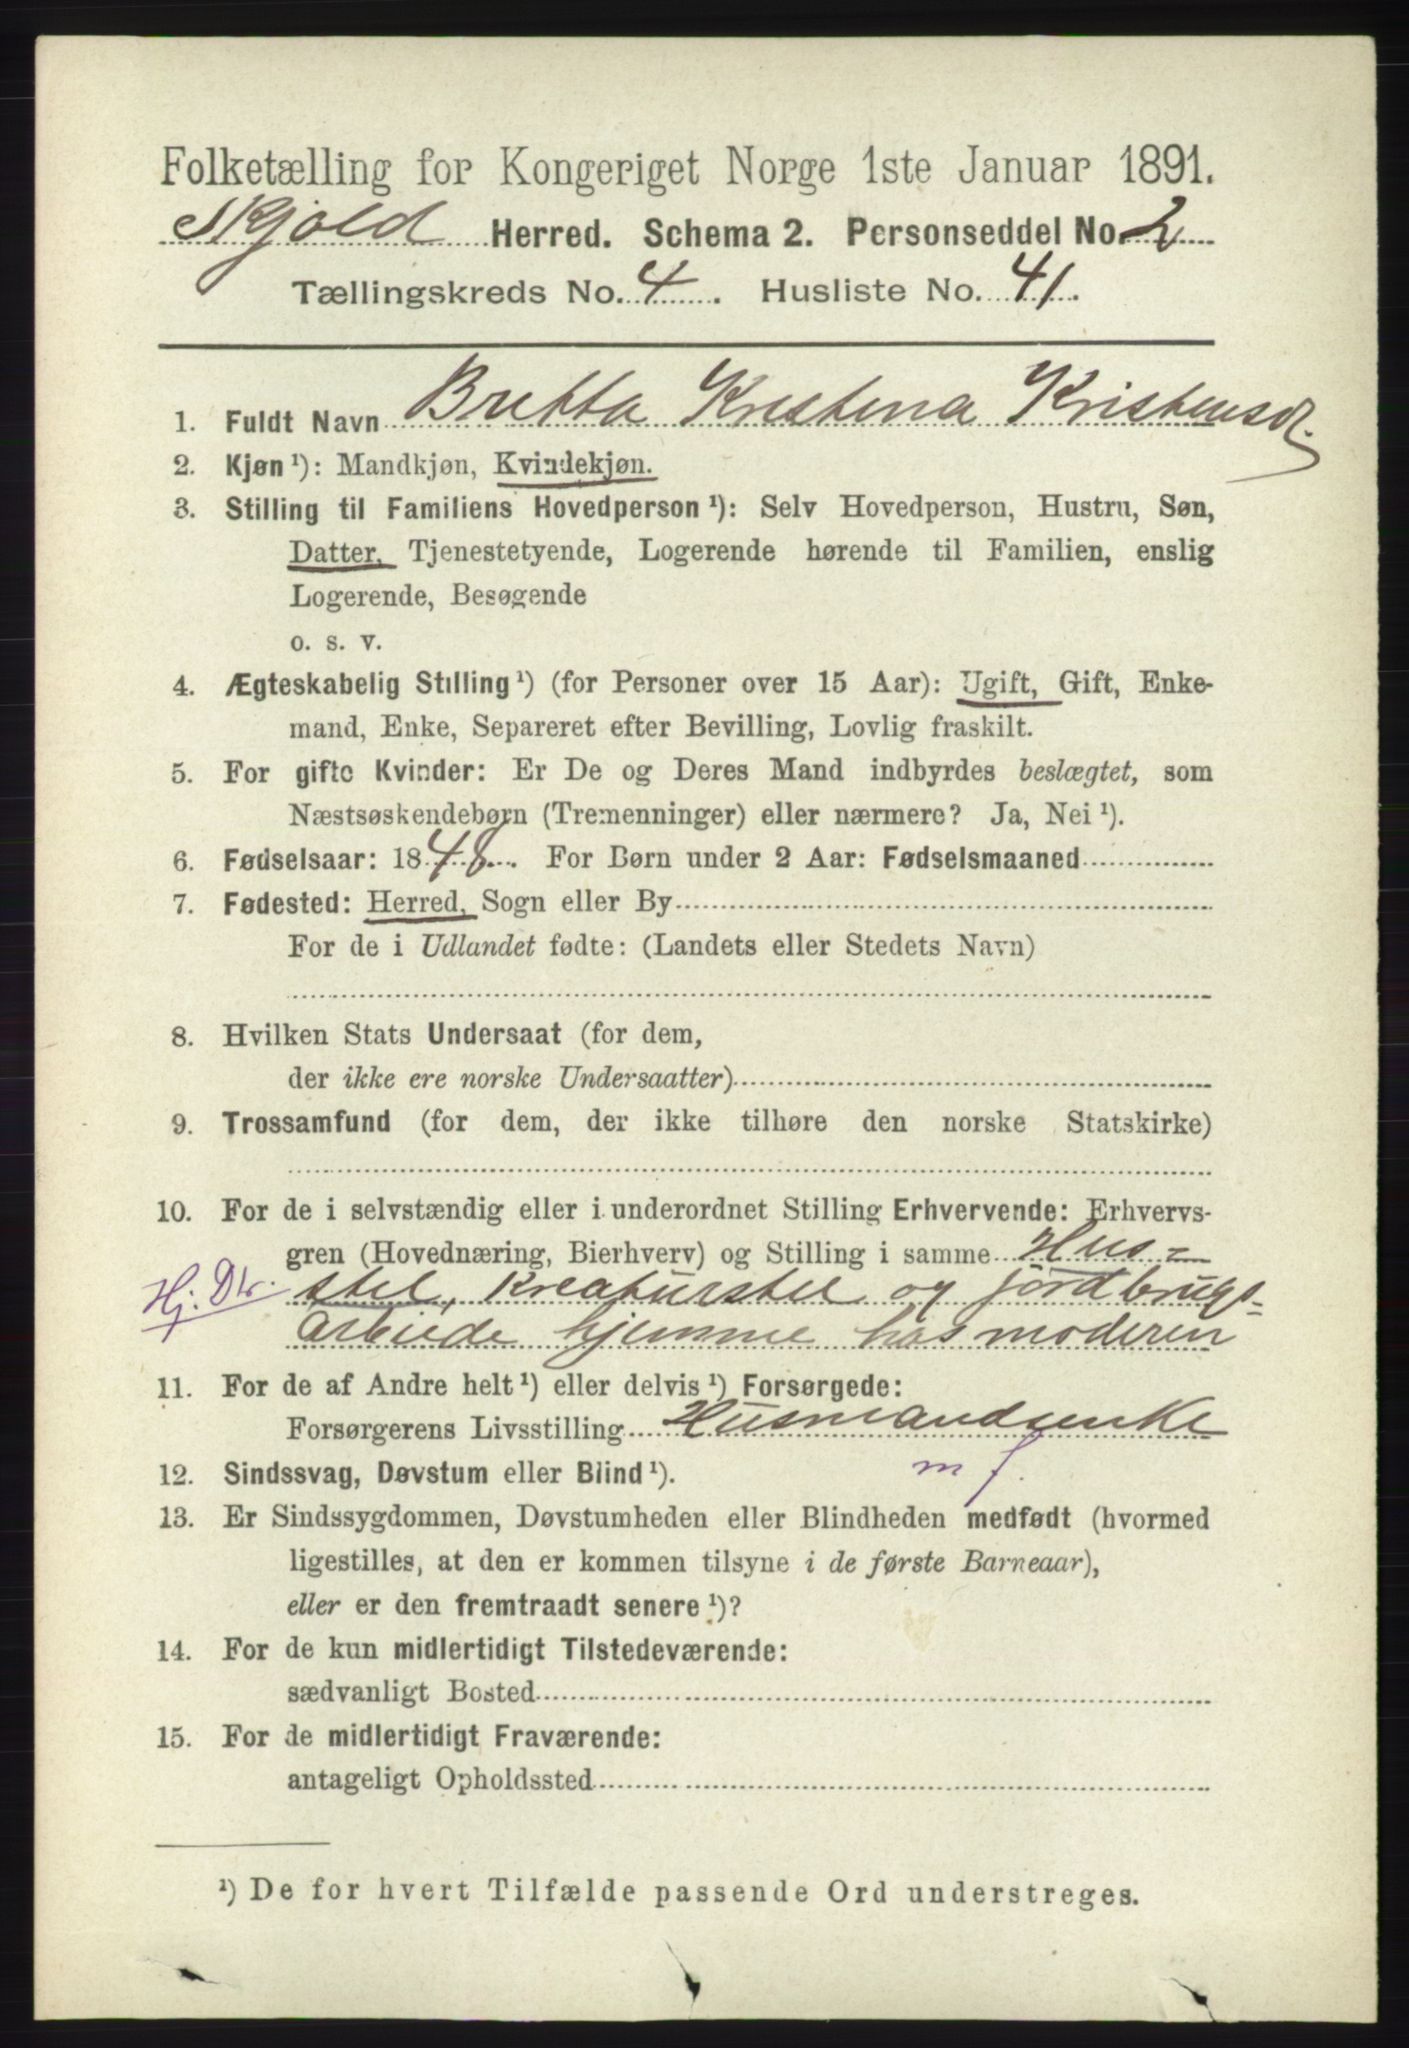 Folketælling for Kongeriget Norge 1ste Januar 1891.
Skjold Herred. Schema 2. Personseddel No. 2
Tællingskreds No. 4. Husliste No. 41.
1. Fuldt Navn Britta Kristina Kristensd.
2. Kjøn ¹): Mandkjøn, Kvindekjøn.
3. Stilling til Familiens Hovedperson ¹): Selv Hovedperson, Hustru, Søn,
Datter, Tjenestetyende, Logerende hørende til Familien, enslig
Logerende, Besøgende
o. s. v.
4. Ægteskabelig Stilling ¹) (for Personer over 15 Aar): Ugift, Gift, Enke-
mand, Enke, Separeret efter Bevilling, Lovlig fraskilt.
5. For gifte Kvinder: Er De og Deres Mand indbyrdes beslægtet, som
Næstsøskendebørn (Tremenninger) eller nærmere? Ja, Nei ¹).
6. Fødselsaar: 1848. For Børn under 2 Aar: Fødselsmaaned
7. Fødested: Herred, Sogn eller By
For de i Udlandet fødte: (Landets eller Stedets Navn)
8. Hvilken Stats Undersaat (for dem,
der ikke ere norske Undersaatter)
9. Trossamfund (for dem, der ikke tilhøre den norske Statskirke)
10. For de i selvstændig eller i underordnet Stilling Erhvervende: Erhvervs-
gren (Hovednæring, Bierhverv) og Stilling i samme Hus=
Hj. Dtr. stel, Kreaturstel og jordbrugs=
arbeide hjemme hos moderen
11. For de af Andre helt ¹) eller delvis ¹) Forsørgede:
Forsørgerens Livsstilling Husmandsenke
12. Sindssvag, Døvstum eller Blind ¹). m f.
13. Er Sindssygdommen, Døvstumheden eller Blindheden medfødt (hvormed
ligestilles, at den er kommen tilsyne i de første Barneaar),
eller er den fremtraadt senere ¹)?
14. For de kun midlertidigt Tilstedeværende:
sædvanligt Bosted
15. For de midlertidigt Fraværende:
antageligt Opholdssted
¹) De for hvert Tilfælde passende Ord understreges.